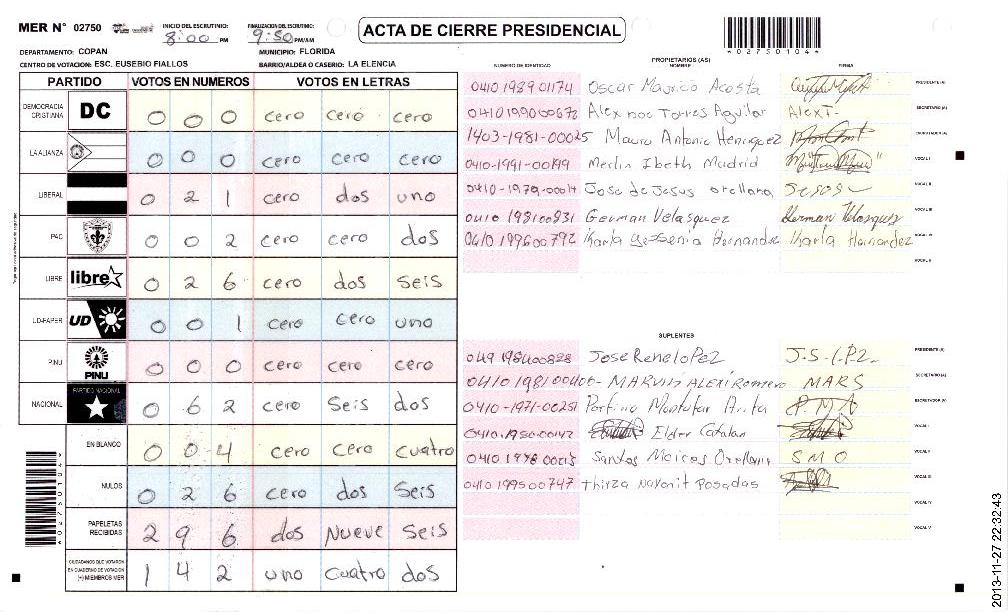 MER N° 02750
INICIO DEL ESCRUTINIO: 8:00 PM
FINALIZACION DEL ESCRUTINIO: 9:50 PM/AM
ACTA DE CIERRE PRESIDENCIAL
*02750104*
DEPARTAMENTO: COPAN
MUNICIPIO: FLORIDA
CENTRO DE VOTACION: ESC. EUSEBIO FIALLOS
BARRIO/ALDEA O CASERIO: LA ELENCIA
PARTIDO VOTOS EN NUMEROS VOTOS EN LETRAS
DEMOCRACIA CRISTIANA DC 0 0 0 cero cero cero
LA ALIANZA 0 0 0 cero cero cero
LIBERAL 0 2 1 cero dos uno
PAC 0 0 2 cero cero dos
LIBRE libre 0 2 6 cero dos seis
UD-FAPER UD 0 0 1 cero cero uno
PINU PINU 0 0 0 cero cero cero
NACIONAL PARTIDO NACIONAL 0 6 2 cero Seis dos
EN BLANCO 0 0 4 cero cero cuatro
NULOS 0 2 6 cero dos Seis
PAPELETAS RECIBIDAS 2 9 6 dos Nueve Seis
CIUDADANOS QUE VOTARON EN CUADERNO DE VOTACION (+) MIEMBROS MER 1 4 2 uno cuatro dos
PROPIETARIOS (AS)
NUMERO DE IDENTIDAD NOMBRE FIRMA
0410 1989 01174 Oscar Mauricio Acosta PRESIDENTE (A)
0410 1990 00672 Torres Aguilar AlexT. SECRETARIO (A)
1403-1981-00025 Mauro Antonio Henriquez ESCRUTADOR (A)
0410-1991-00199 Merlin Ibeth Madrid VOCAL I
0410-1979-00014 Jose de Jesus orellana VOCAL II
0410 1981 00831 German Velasquez German Velasquez VOCAL III
0410 1996 00792 Karla Yessenia Hernandez Karla Hernandez VOCAL IV
VOCAL V
SUPLENTES
Jose Rene lopez PRESIDENTE (A)
0410 1981 00400- SECRETARIO (A) MARS
0410-1971-00251 P.M.A ESCRUTADOR (A)
Elder Catalan VOCAL I
Santos Orellana S M O VOCAL II
0410 1995 00747 Thirza Nayarit Posadas VOCAL III
VOCAL IV
VOCAL V
*02750104*
2013-11-27 22:32:43